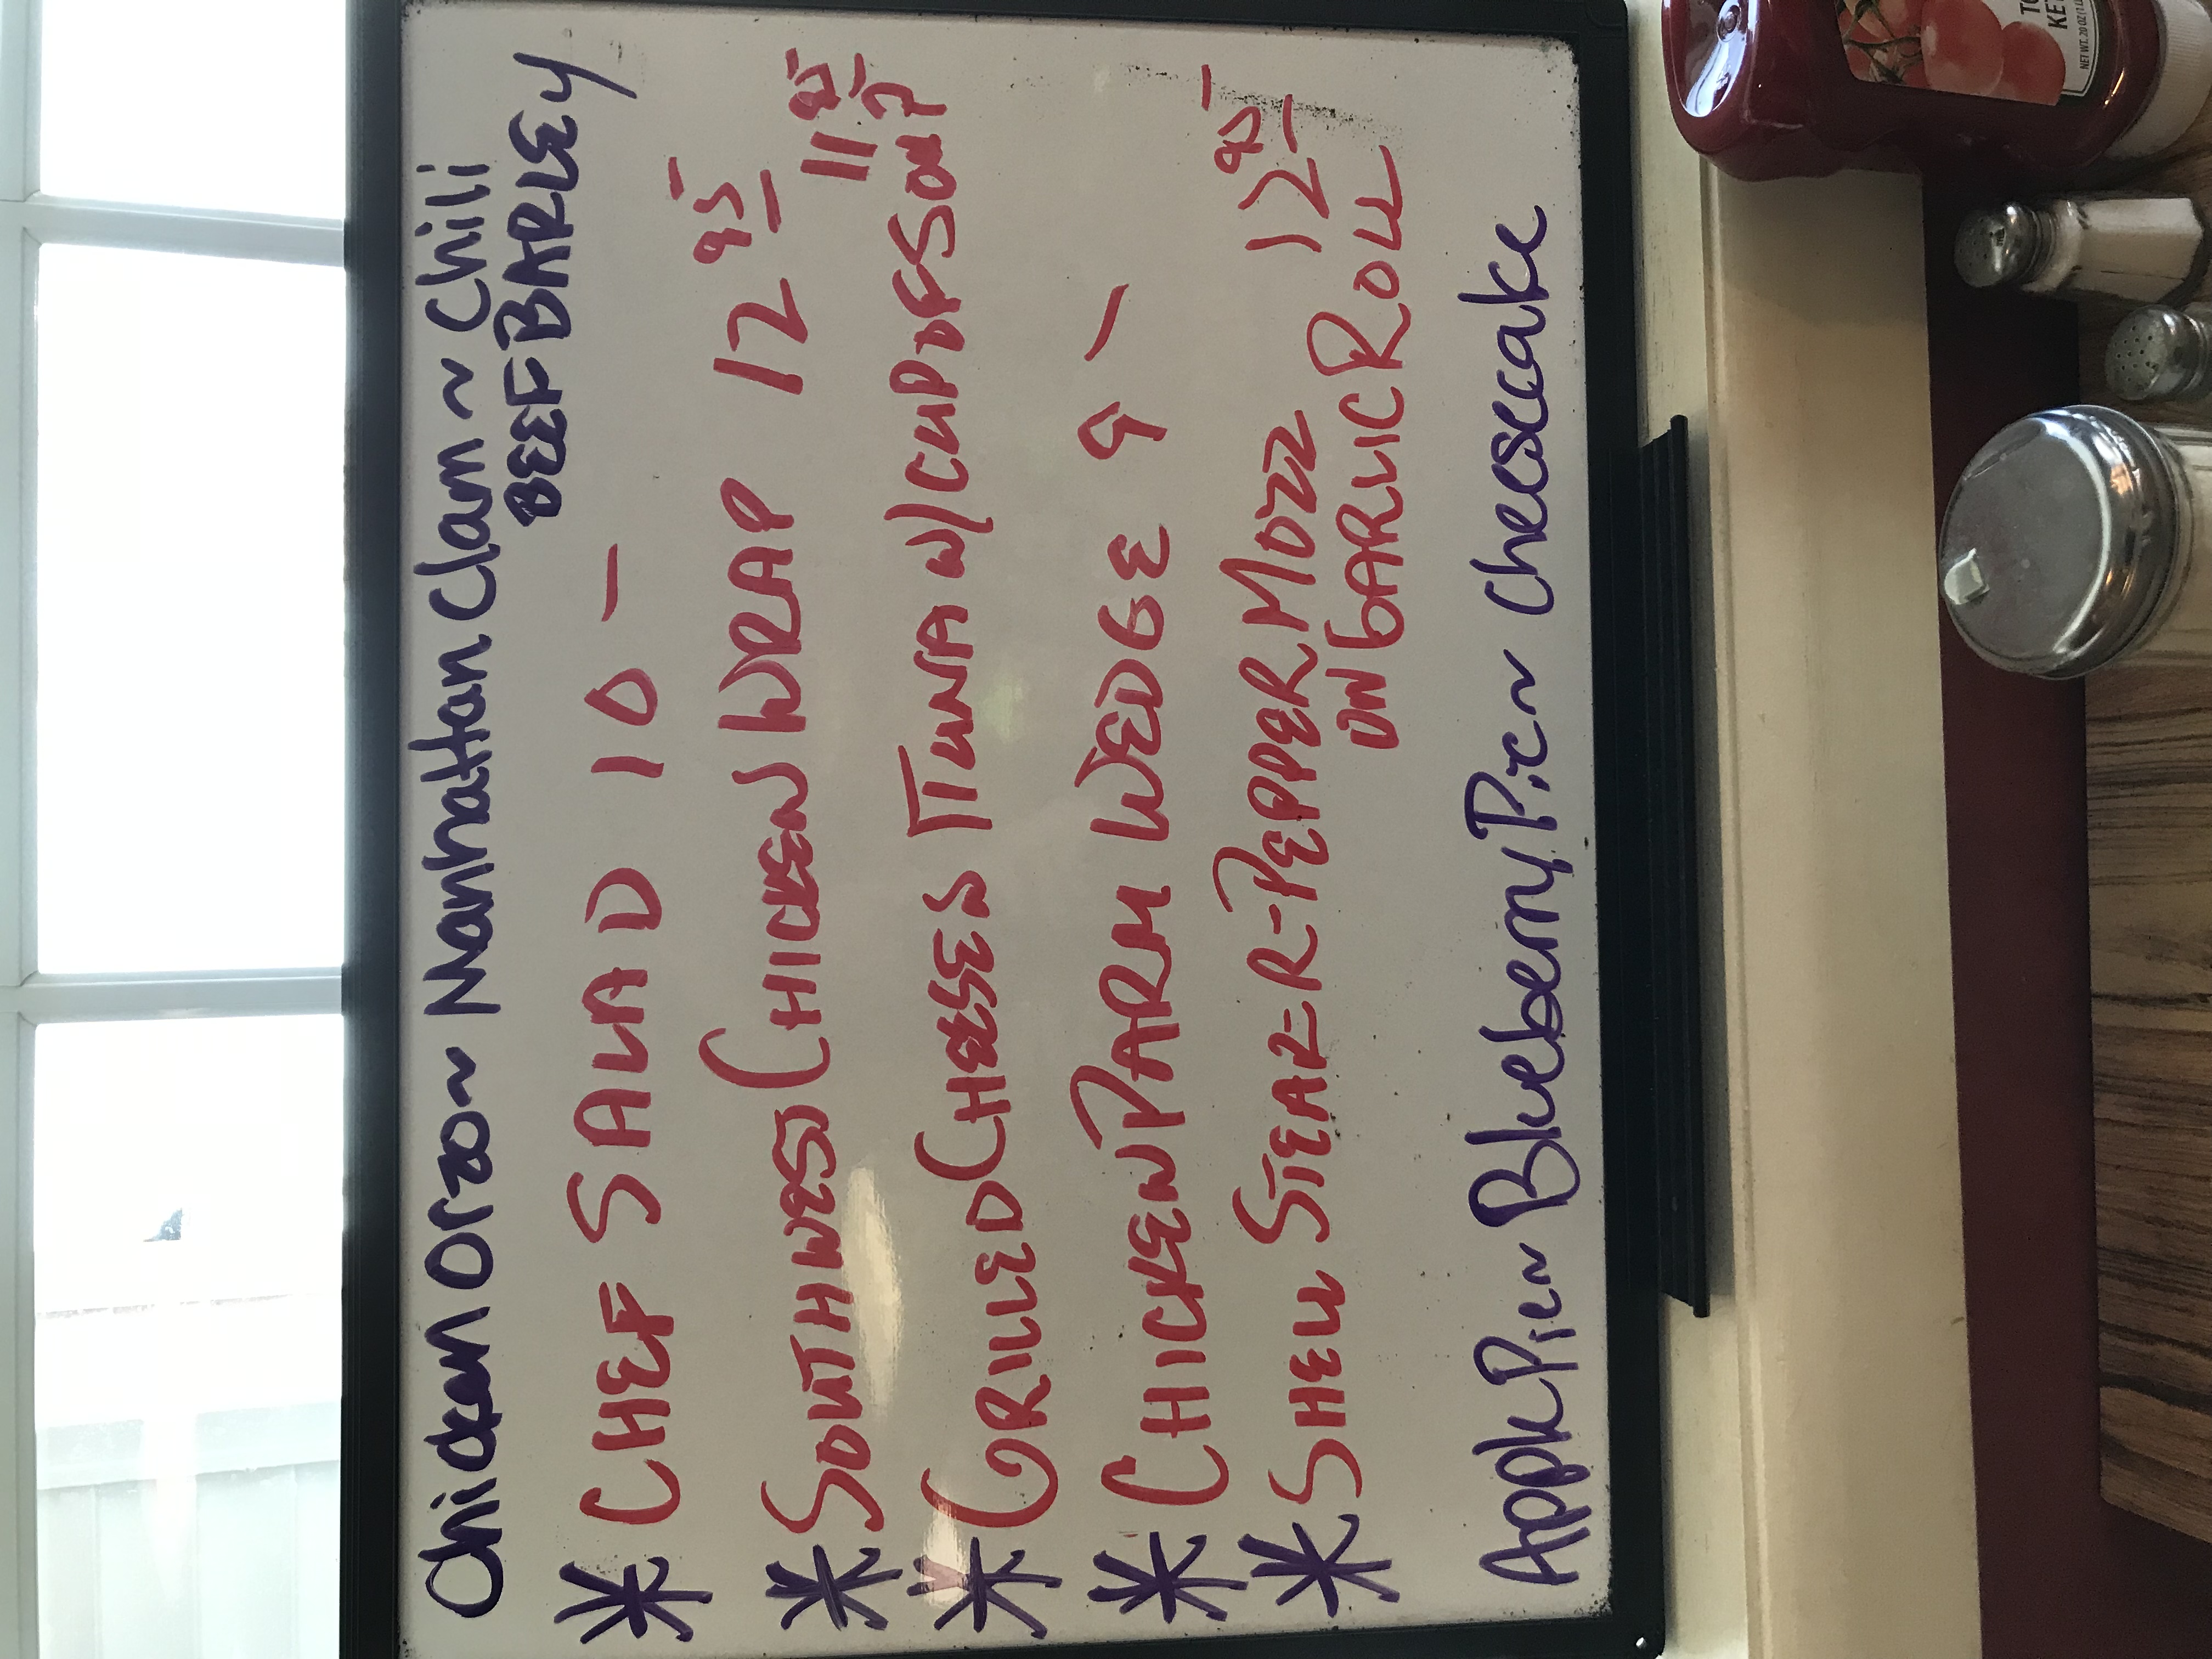 Chicken Orzo ~ Manhattan Clam ~ Chili
BEEF BARLEY
* CHEF SALAD 10 -
* SOUTHWEST CHICKEN WRAP 12 95
* GRILLED CHEESE TUNA W/ CUP OF SOUP 11 95
* CHICKEN PARM WEDGE 9 -
* SHELL STEAK R-PEPPER MOZZ 12 95
ON GARLIC ROLL
Apple Pie ~ Blueberry Pie ~ Cheesecake
TO
KE
NET WT. 20 OZ (1 L